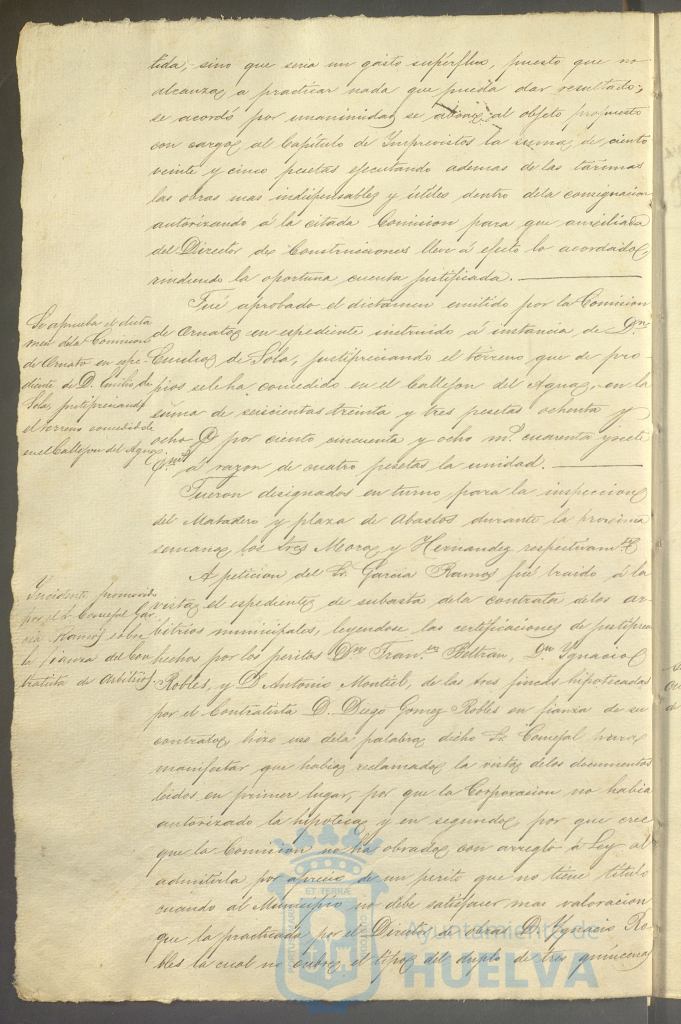 tida, sino que seria un gasto supérfluo, puesto que no
alcanza a practicar nada que pueda dar resultado;
se acordó por unanimidad se abonase al objeto propuesto
con cargo al Capitulo de Imprevistos la suma de ciento
veinte y cinco pesetas ejecutando ademas de las tarimas
las obras mas indispensables y útiles dentro dela consignacion
autorizando á la citada Comision para que auxiliada
del Director de Construcciones lleve á efecto lo acordado,
rindiendo la oportuna cuenta justificada.
Se aprueba el dicta
men dela Comision
de Ornato en espe
diente de D. Emilio de
Sola, justipreciando
el terreno concedido
en el Callejon del Agua.
Fué aprobado el dictamen emitido por la Comision
de Ornato en espediente instruido á instancia de Dn
Emilio de Sola, justipreciando el terreno que de pro-
pios se le ha concedido en el Callejon del Agua, en la
suma de seiscientas treinta y tres pesetas ochenta y
ocho por ciento cincuenta y ocho m. cuarenta y siete
á razon de cuatro pesetas la unidad.
Fueron designados en turno para la inspeccion
del Matadero y plaza de Abastos durante la proxima
semana los Sres Mora y Hernandez respectivamte
Incidente promovido
por el Sr Concejal Gar
cia Ramos sobre
la fianza del Con
tratista de Arbitrios.
A peticion del Sr. Garcia Ramos fué traido á la
vista el espediente de subasta dela contrata delos ar-
bitrios municipales, leyendose las certificaciones de justiprecio
hechos por los peritos Dn Franco Beltran, Dn Ygnacio
Robles, y D. Antonio Montiel, de las tres fincas hipotecadas
por el Contratista D. Diego Gomez Robles en fianza de su
contrato, hizo uso dela palabra dicho Sr Concejal para
manifestar que habia reclamado la vista delos documentos
leidos en primer lugar, por que la Corporacion no habia
autorizado la hipoteca y en segundo por que cree
que la Comision no ha obrado con arreglo á Ley al
admitirla por aprecio de un perito que no tiene titulo
cuando al Municipio no debe satisfacer mas valoracion
que la practicada por el Director de obras D. Ygnacio Ro-
bles la cual no cubre el tipo del duplo de tres quincenas
Ayuntamiento de
HUELVA